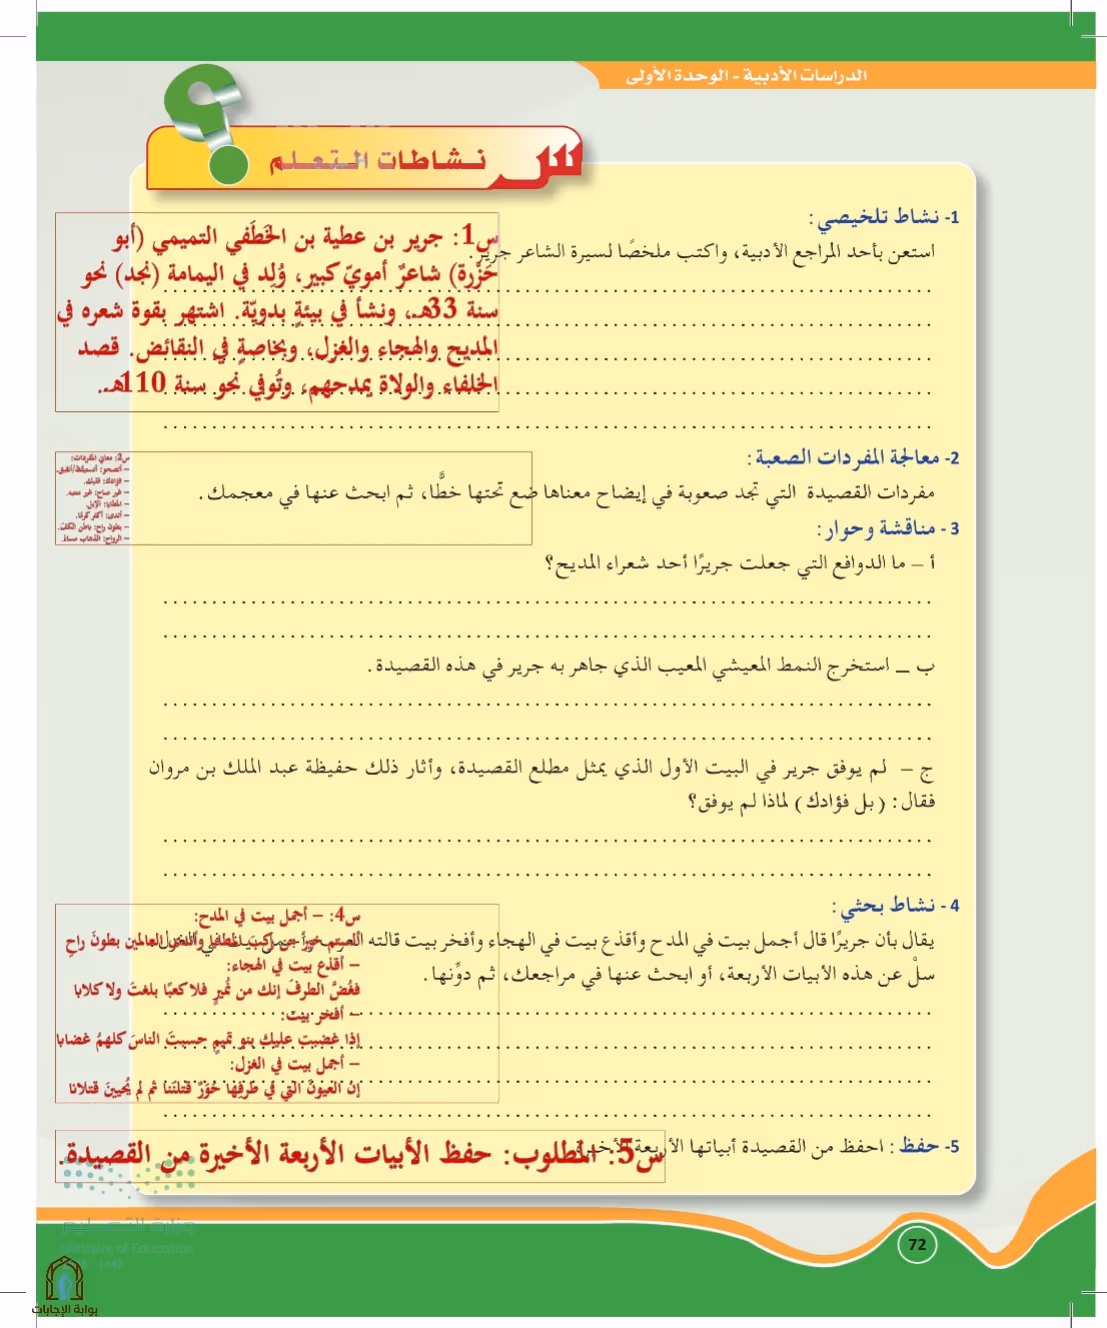 الدراسات الأدبية - الوحدة الأولى
نشاطات التعلم
1- نشاط تلخيصي:
استعن بأحد المراجع الأدبية، واكتب ملخصًا لسيرة الشاعر جرير.
س1: جرير بن عطية بن الخَطَفي التميمي (أبو
حَزْرة) شاعرٌ أمويّ كبير، وُلِد في اليمامة (نجد) نحو
سنة 33هـ، ونشأ في بيئةٍ بدويّة. اشتهر بقوة شعره في
المديح والهجاء والغزل، وبخاصةٍ في النقائض. قصد
الخلفاء والولاة يمدحهم، وتُوفي نحو سنة 110هـ.
2- معالجة المفردات الصعبة:
مفردات القصيدة التي تجد صعوبة في إيضاح معناها ضع تحتها خطًّا، ثم ابحث عنها في معجمك.
س2: معاني المفردات:
– أتصحو: أتستيقظ/أتفيق.
– فؤادك: قلبك.
– غير صاح: غير منتبه.
– المطايا: الإبل.
– أندى: أكثر كرمًا.
– بطون راح: باطن الكف.
– الرواح: الذهاب مساءً.
3 - مناقشة وحوار:
أ – ما الدوافع التي جعلت جريرًا أحد شعراء المديح؟
ب – استخرج النمط المعيشي المعيب الذي جاهر به جرير في هذه القصيدة.
ج – لم يوفق جرير في البيت الأول الذي يمثل مطلع القصيدة، وأثار ذلك حفيظة عبد الملك بن مروان
فقال: (بل فؤادك) لماذا لم يوفق؟
4 - نشاط بحثي:
يقال بأن جريرًا قال أجمل بيت في المدح وأقذع بيت في الهجاء وأفخر بيت قالته العرب وأجمل بيت في الغزل.
سلْ عن هذه الأبيات الأربعة، أو ابحث عنها في مراجعك، ثم دوِّنها.
س4: – أجمل بيت في المدح:
ألستم خيرَ من ركبَ المطايا وأندى العالمين بطونَ راحِ
– أقذع بيت في الهجاء:
فغُضَّ الطرفَ إنك من نُميرٍ فلا كعبًا بلغتَ ولا كلابا
– أفخر بيت:
إذا غضبت عليك بنو تميمٍ حسبتَ الناسَ كلهمُ غضابا
– أجمل بيت في الغزل:
إنّ العيونَ التي في طَرفِها حَوَرٌ قتلننا ثم لم يُحيينَ قتلانا
5- حفظ: احفظ من القصيدة أبياتها الأربعة الأخيرة.
س5: المطلوب: حفظ الأبيات الأربعة الأخيرة من القصيدة.
وزارة التعليم
Ministry of Education
72
بوابة الإجابات